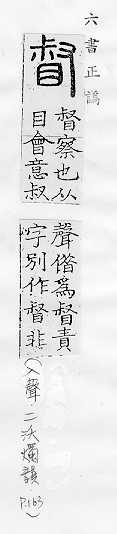 六書正譌
督
督察也从
目會意叔
聲借為督責
字別作督非
(入聲 二沃燭韻 P.163)